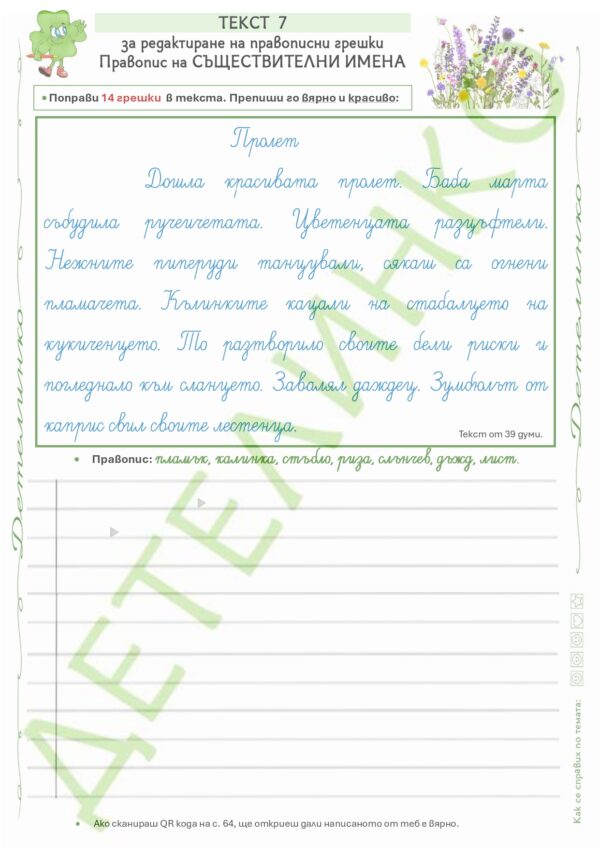 ТЕКСТ 7
за редактиране на правописни грешки
Правопис на СЪЩЕСТВИТЕЛНИ ИМЕНА
• Поправи 14 грешки в текста. Препиши го вярно и красиво:
Пролет
Дошла красивата пролет. Баба марта
събудила ручеичетата. Цветенцата разцъфтели.
Нежните пиперуди танцували, сякаш са огнени
пламачета. Кълинките кацали на стабалцето на
кукиченцето. То разтворило своите бели риски и
погледнало към сланцето. Завалял даждец. Зумбюлът от
каприс свил своите лестенца.
Текст от 39 думи.
• Правопис: пламък, калинка, стъбло, риза, слънчев, дъжд, лист.
Детелинко
Детелинко
ДЕТЕЛИНКО
Как се справих по темата:
• Ако сканираш QR кода на с. 64, ще откриеш дали написаното от теб е вярно.